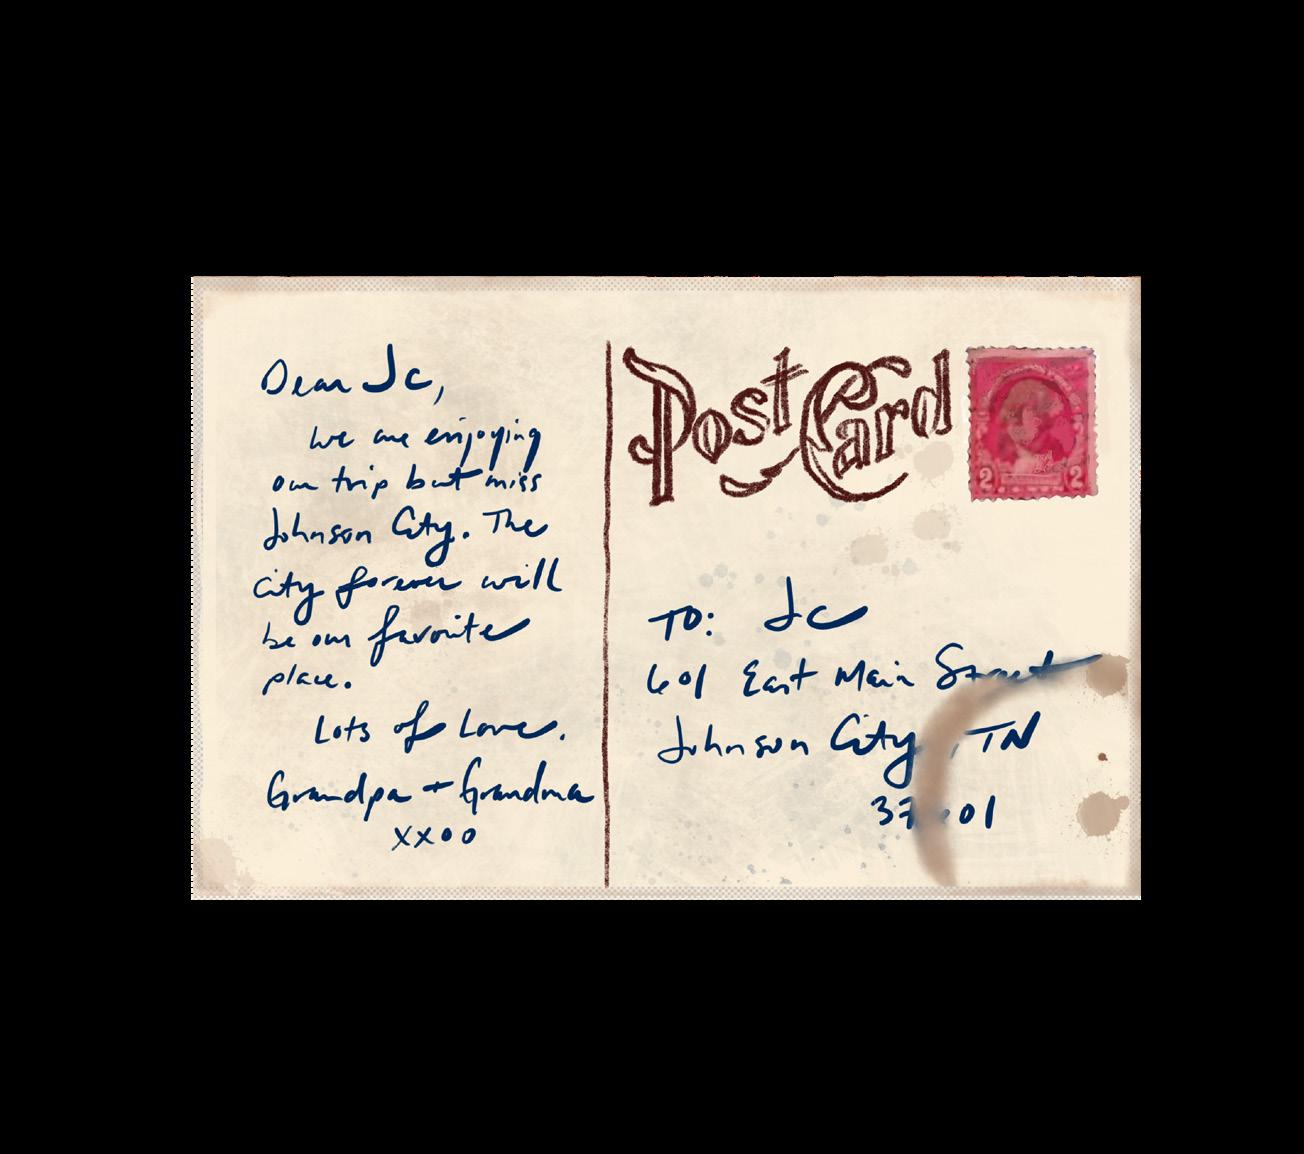 Dear Jc,
We are enjoying
our trip but miss
Johnson City. The
City forever will
be our favorite
place.
Lots of Love.
Grandpa + Grandma
xxoo
Post Card
2 2
TO: Jc
601 East Main Street
Johnson City, TN